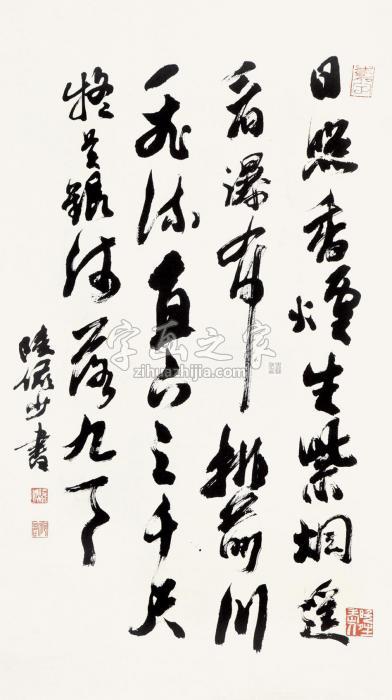 日照香爐生紫烟遥
看瀑布掛前川
飛流直下三千尺
疑是銀河落九天
陸儼少書
字画之家
www.zihuazhijia.com